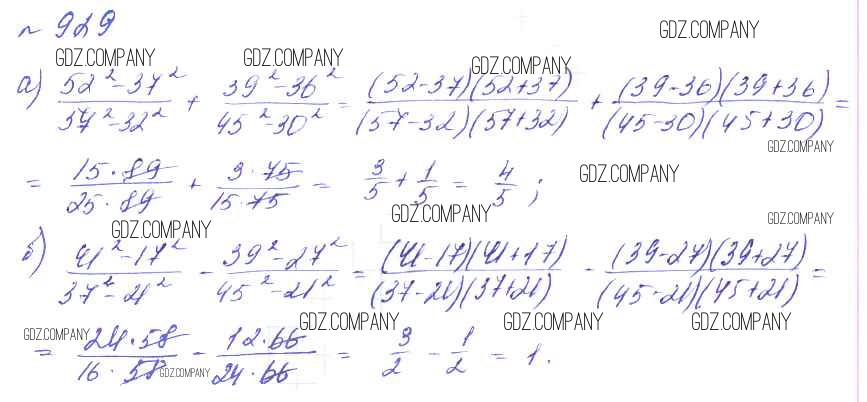 № 929
GDZ.COMPANY
GDZ.COMPANY GDZ.COMPANY GDZ.COMPANY
а) (52² - 37²)/(57² - 32²) + (39² - 36²)/(45² - 30²) = (52-37)(52+37)/(57-32)(57+32) + (39-36)(39+36)/(45-30)(45+30) =
GDZ.COMPANY
= 15·89/25·89 + 3·75/15·75 = 3/5 + 1/5 = 4/5 ; GDZ.COMPANY
GDZ.COMPANY GDZ.COMPANY GDZ.COMPANY
б) (41² - 17²)/(37² - 21²) - (39² - 27²)/(45² - 21²) = (41-17)(41+17)/(37-21)(37+21) - (39-27)(39+27)/(45-21)(45+21) =
GDZ.COMPANY GDZ.COMPANY GDZ.COMPANY GDZ.COMPANY
= 24·58/16·58 - 12·66/24·66 = 3/2 - 1/2 = 1.
GDZ.COMPANY